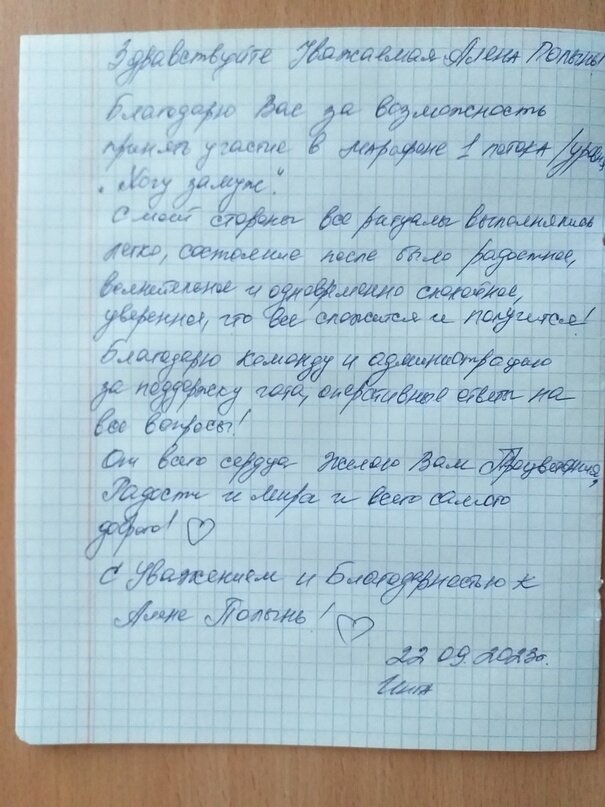 Здравствуйте Уважаемая Алена Полынь!
Благодарю Вас за возможность
принять участие в марафоне 1 потока /уровня
„Хочу замуж".
С моей стороны все ритуалы выполнялись
легко, состояние после было радостное,
волнительное и одновременно спокойное,
уверенное, что всё сложится и получится!
Благодарю команду и администрацию
за поддержку чата, оперативные ответы на
все вопросы!
От всего сердца Желаю Вам Процветания,
Радости и Мира и всего самого
доброго! ♡
С Уважением и Благодарностью к
Алене Полынь! ♡
22.09.2023г.
Инга